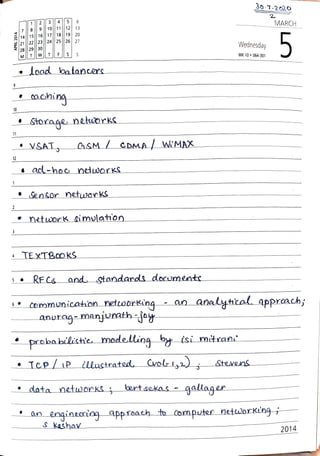 30.7.2020
2
MARCH
Wednesday
5
WK 10 • 064-301
APRIL 2014
1 2 3 4 5 6
7 8 9 10 11 12 13
14 15 16 17 18 19 20
21 22 23 24 25 26 27
28 29 30
M T W T F S S
• load balancers
9
• caching
10
• storage networks
11
• VSAT, GSM / CDMA / WiMAX
12
• ad-hoc networks
1
• sensor networks
2
• network simulation
3
4 TEXTBOOKS
5 • RFCs and standards documents
6 • communication networking - an analytical approach;
anurag-manjunath-joy
• probabilistic modelling by isi mitrani
• TCP / IP illustrated (vol-1,2) ; Stevens
• data networks ; bertsekas - gallager
• an engineering approach to computer networking ;
s keshav
2014